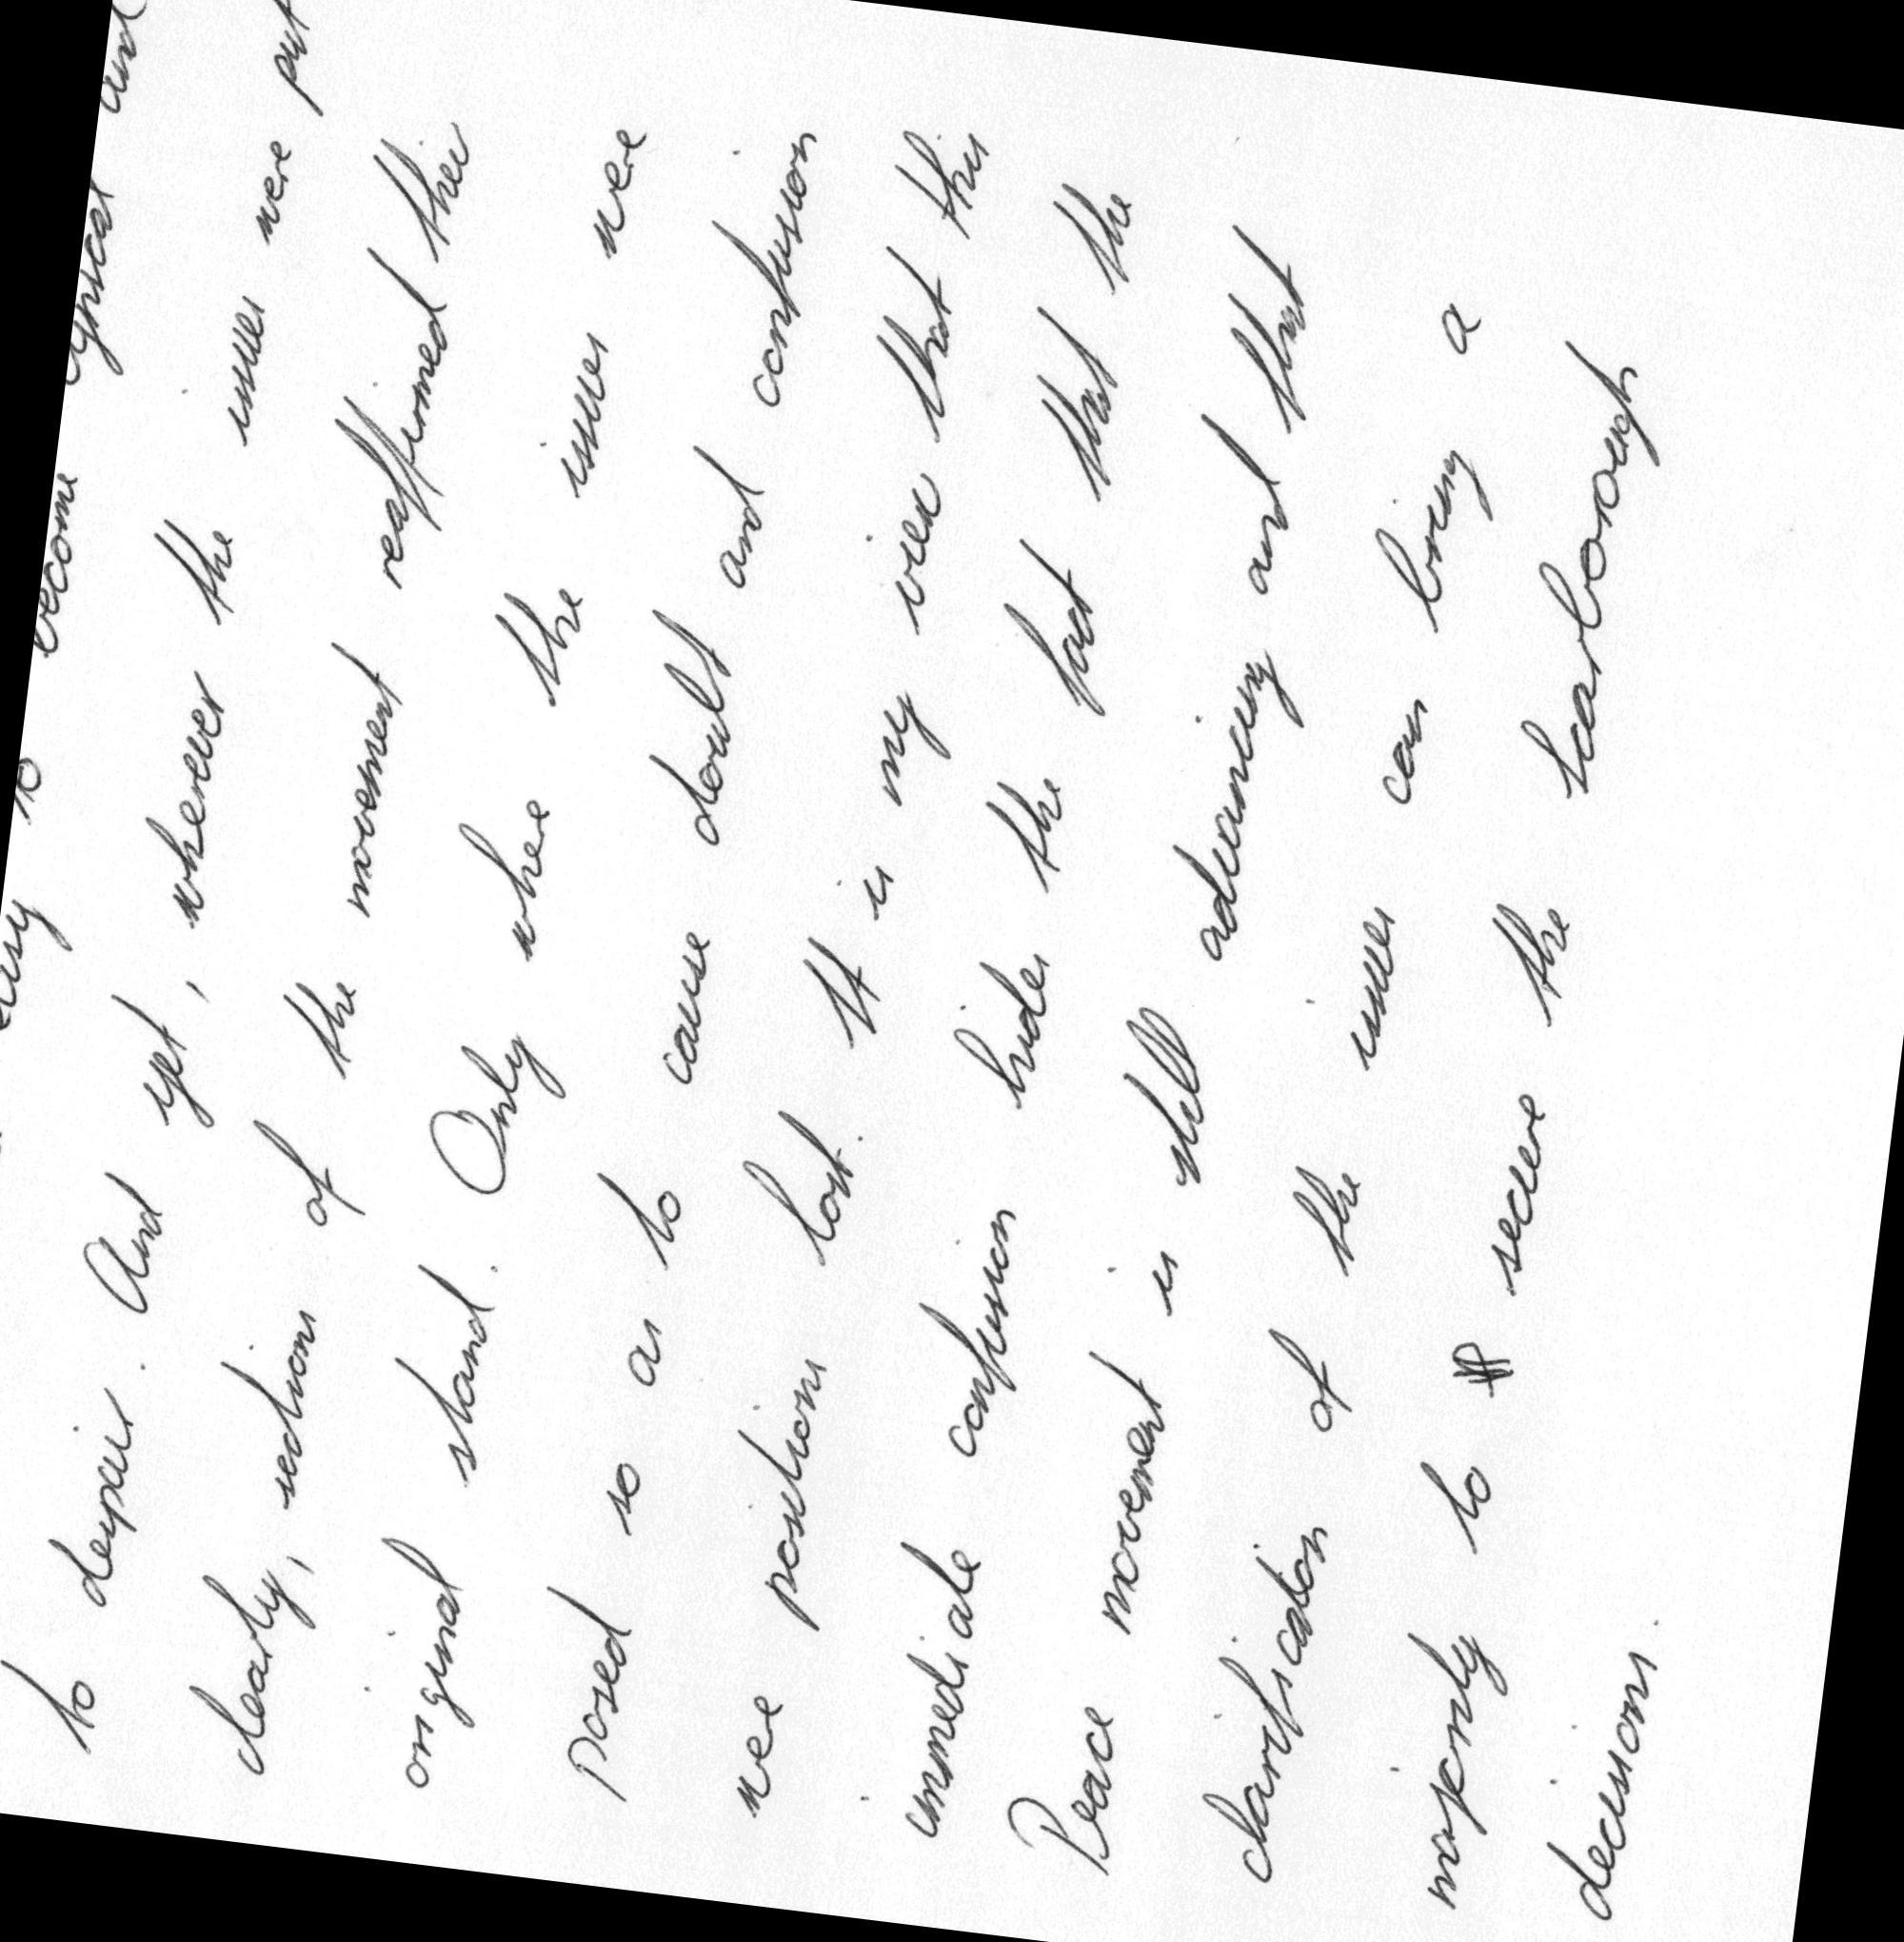 easy to become cynical and
to despair. And yet, wherever the issues were put
clearly, sections of the movement reaffirmed their
original stand. Only where the issues were
posed so as to cause doubt and confusion
were positions lost. It is my view that this
immediate confusion hides the fact that the
Peace movement is still advancing and that
clarification of the issues can bring a
majority to secure the Scarborough
decisions.